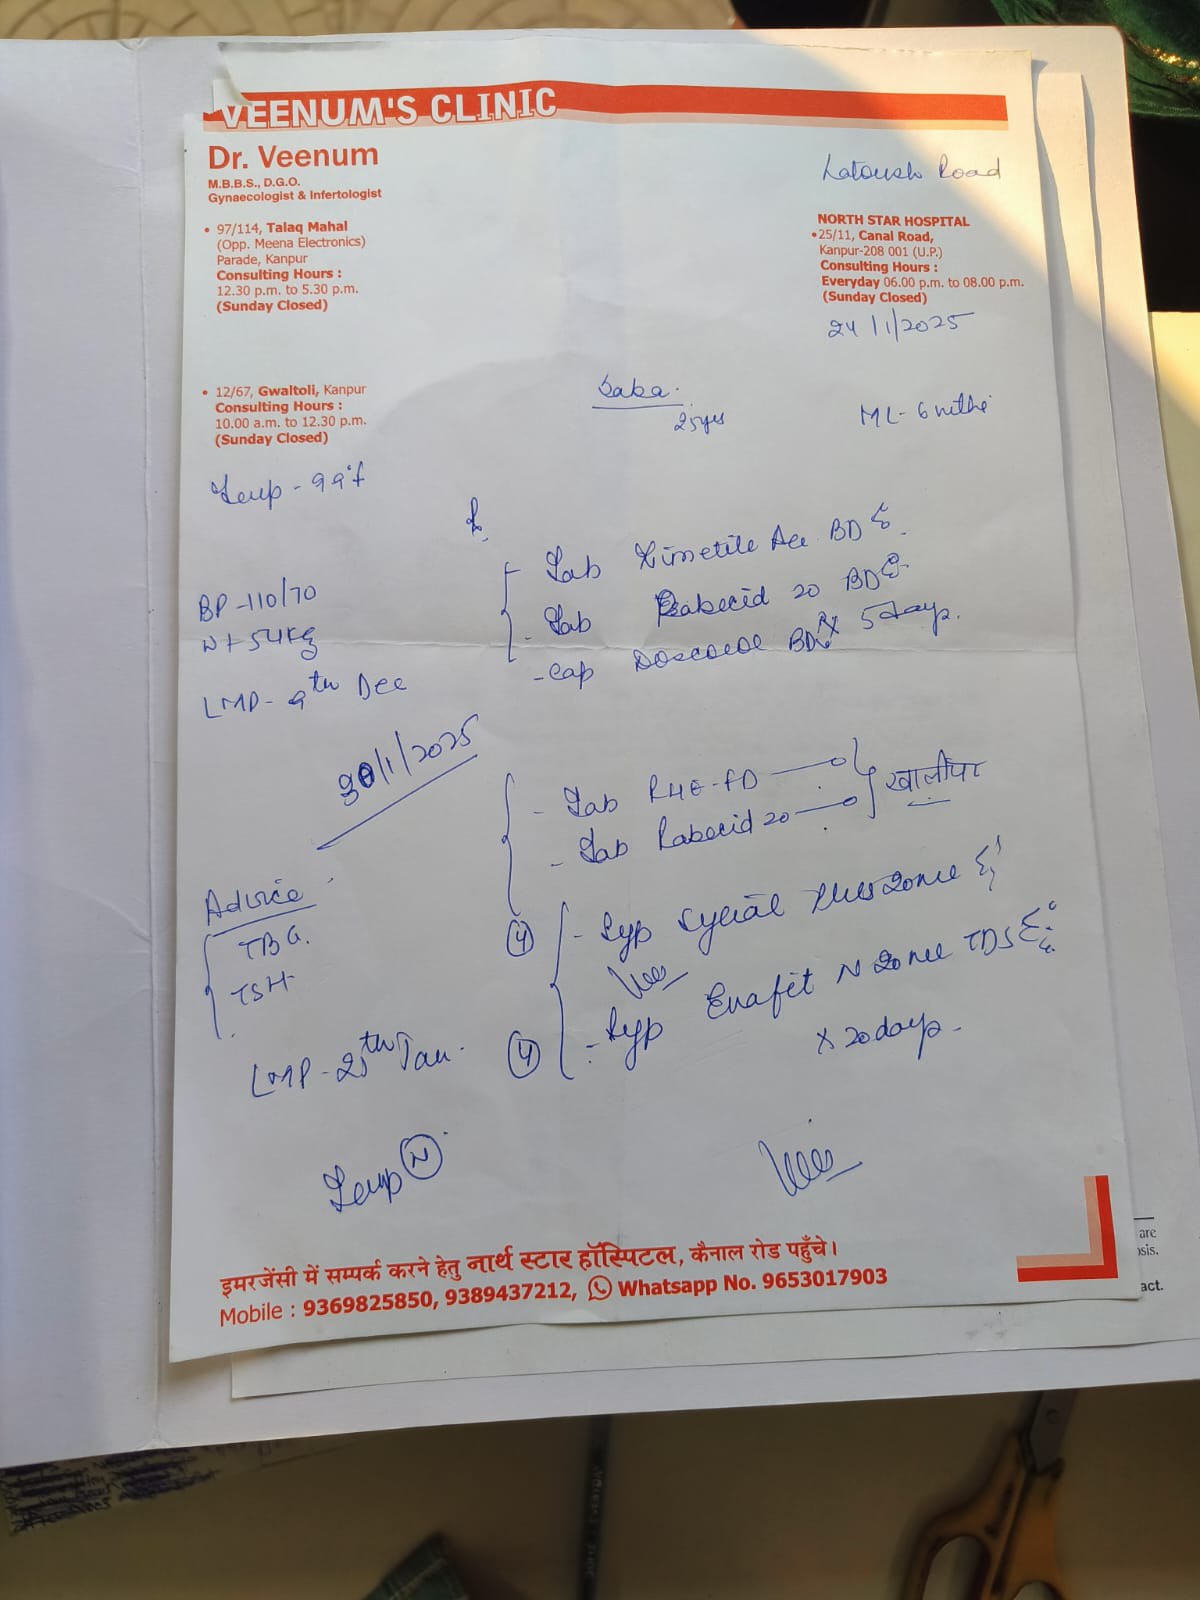 VEENUM'S CLINIC
Dr. Veenum
M.B.B.S., D.G.O.
Gynaecologist & Infertologist
• 97/114, Talaq Mahal
(Opp. Meena Electronics)
Parade, Kanpur
Consulting Hours :
12.30 p.m. to 5.30 p.m.
(Sunday Closed)
Latoush Road
NORTH STAR HOSPITAL
• 25/11, Canal Road,
Kanpur-208 001 (U.P.)
Consulting Hours :
Everyday 06.00 p.m. to 08.00 p.m.
(Sunday Closed)
24/1/2025
• 12/67, Gwaltoli, Kanpur
Consulting Hours :
10.00 a.m. to 12.30 p.m.
(Sunday Closed)
25yrs
ML- 6
Temp - 99°f
BP -110/70
Wt 54kg
LMP- 9th Dec
- Tab BD
- Tab Rabecid 20 BD
- Cap BD x 5 days.
30/1/2025
- Tab
- Tab Rabecid 20
खालीपेट
Advice
TSH
LMP- 25th Jan.
Temp (N)
(4) - Syp Plus
(4) - Syp TDS
x 20days.
इमरजेंसी में सम्पर्क करने हेतु नार्थ स्टार हॉस्पिटल, कैनाल रोड पहुँचे।
Mobile : 9369825850, 9389437212, Whatsapp No. 9653017903
are
osis.
act.